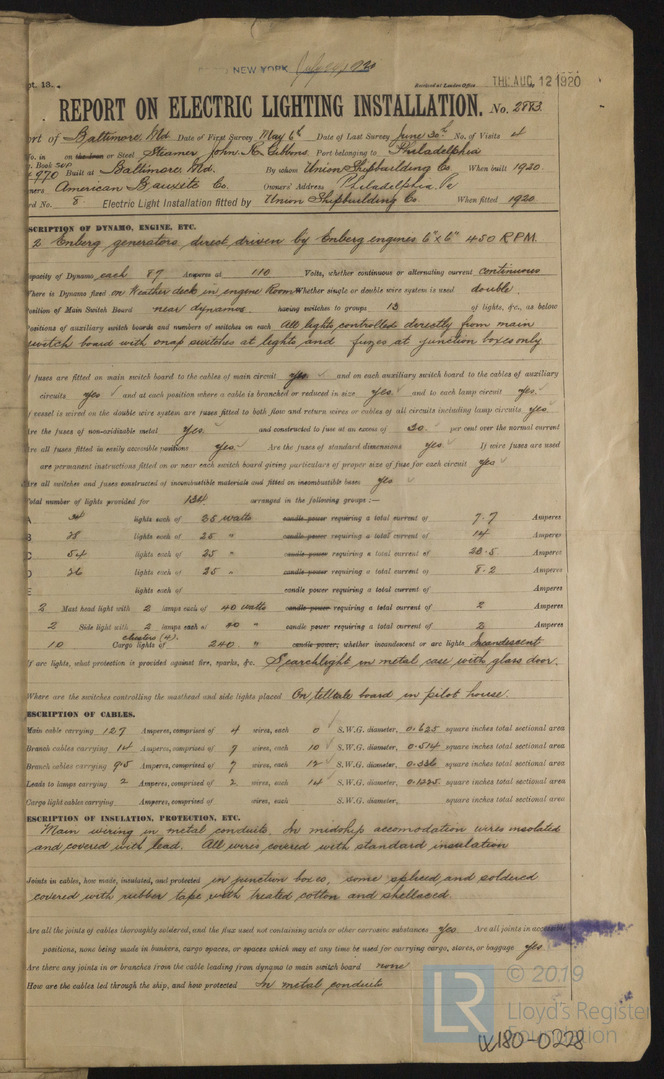 NEW YORK
pt. 13.
Received at London Office THU. AUG. 12 1920
REPORT ON ELECTRIC LIGHTING INSTALLATION. No. 2883
ort of Baltimore, Md Date of First Survey May 6th Date of Last Survey June 30th No. of Visits
No. in on the Iron or Steel Steamer John R. Gibbons Port belonging to Philadelphia
Book Built at Baltimore, Md. By whom Union Shipbuilding Co When built 1920
ners American Bauxite Co. Owners' Address Philadelphia, Pa
rd No. 8 Electric Light Installation fitted by Union Shipbuilding Co. When fitted 1920
SCRIPTION OF DYNAMO, ENGINE, ETC.
2 Enberg generators direct driven by Enberg engines 6" x 6" 450 R.P.M.
apacity of Dynamo each 87 Amperes at 110 Volts, whether continuous or alternating current continuous
Where is Dynamo fixed on Weather deck in engine Room Whether single or double wire system is used double
osition of Main Switch Board near dynamos having switches to groups 13 of lights, &c., as below
ositions of auxiliary switch boards and numbers of switches on each All lights controlled directly from main
switch board with snap switches at lights and fuzes at junction boxes only
f fuses are fitted on main switch board to the cables of main circuit yes and on each auxiliary switch board to the cables of auxiliary
circuits yes and at each position where a cable is branched or reduced in size yes and to each lamp circuit yes.
f vessel is wired on the double wire system are fuses fitted to both flow and return wires or cables of all circuits including lamp circuits yes.
re the fuses of non-oxidizable metal yes. and constructed to fuse at an excess of 30. per cent over the normal current
re all fuses fitted in easily accessible positions yes. Are the fuses of standard dimensions yes. If wire fuses are used
are permanent instructions fitted on or near each switch board giving particulars of proper size of fuse for each circuit yes
re all switches and fuses constructed of incombustible materials and fitted on incombustible bases yes
otal number of lights provided for 134 arranged in the following groups :—
A 34 lights each of 25 watts candle power requiring a total current of 7.7 Amperes
B 28 lights each of 25 " candle power requiring a total current of 14 Amperes
C 54 lights each of 25 " candle power requiring a total current of Amperes
D 36 lights each of 25 " candle power requiring a total current of 8.2 Amperes
E lights each of candle power requiring a total current of Amperes
2 Mast head light with 2 lamps each of 40 watts candle power requiring a total current of 2 Amperes
2 Side light with 2 lamps each of 40 " candle power requiring a total current of 2 Amperes
10 clusters (4) Cargo lights of 240. " candle power, whether incandescent or arc lights Incandescent
f arc lights, what protection is provided against fire, sparks, &c. Searchlight in metal case with glass door.
Where are the switches controlling the masthead and side lights placed On telltale board in pilot house.
ESCRIPTION OF CABLES.
Main cable carrying 127 Amperes, comprised of 4 wires, each 0 S.W.G. diameter, 0.625 square inches total sectional area
Branch cables carrying 14 Amperes, comprised of 7 wires, each 10 S.W.G. diameter, 0.514 square inches total sectional area
Branch cables carrying 9.5 Amperes, comprised of 7 wires, each 12 S.W.G. diameter, 0.336 square inches total sectional area
Leads to lamps carrying 2 Amperes, comprised of 2 wires, each 14 S.W.G. diameter, 0.1225 square inches total sectional area
Cargo light cables carrying Amperes, comprised of wires, each S.W.G. diameter, square inches total sectional area
ESCRIPTION OF INSULATION, PROTECTION, ETC.
Main wiring in metal conduits. In midship accomodation wires insolated
and covered with lead. All wires covered with standard insulation
Joints in cables, how made, insulated, and protected in junction boxes, some spliced and soldered
covered with rubber tape with treated cotton and shellaced.
Are all the joints of cables thoroughly soldered, and the flux used not containing acids or other corrosive substances yes Are all joints in accessible
positions, none being made in bunkers, cargo spaces, or spaces which may at any time be used for carrying cargo, stores, or baggage yes
Are there any joints in or branches from the cable leading from dynamo to main switch board none
How are the cables led through the ship, and how protected In metal conduits
LR © 2019
Lloyd's Register
Foundation
W180-0228